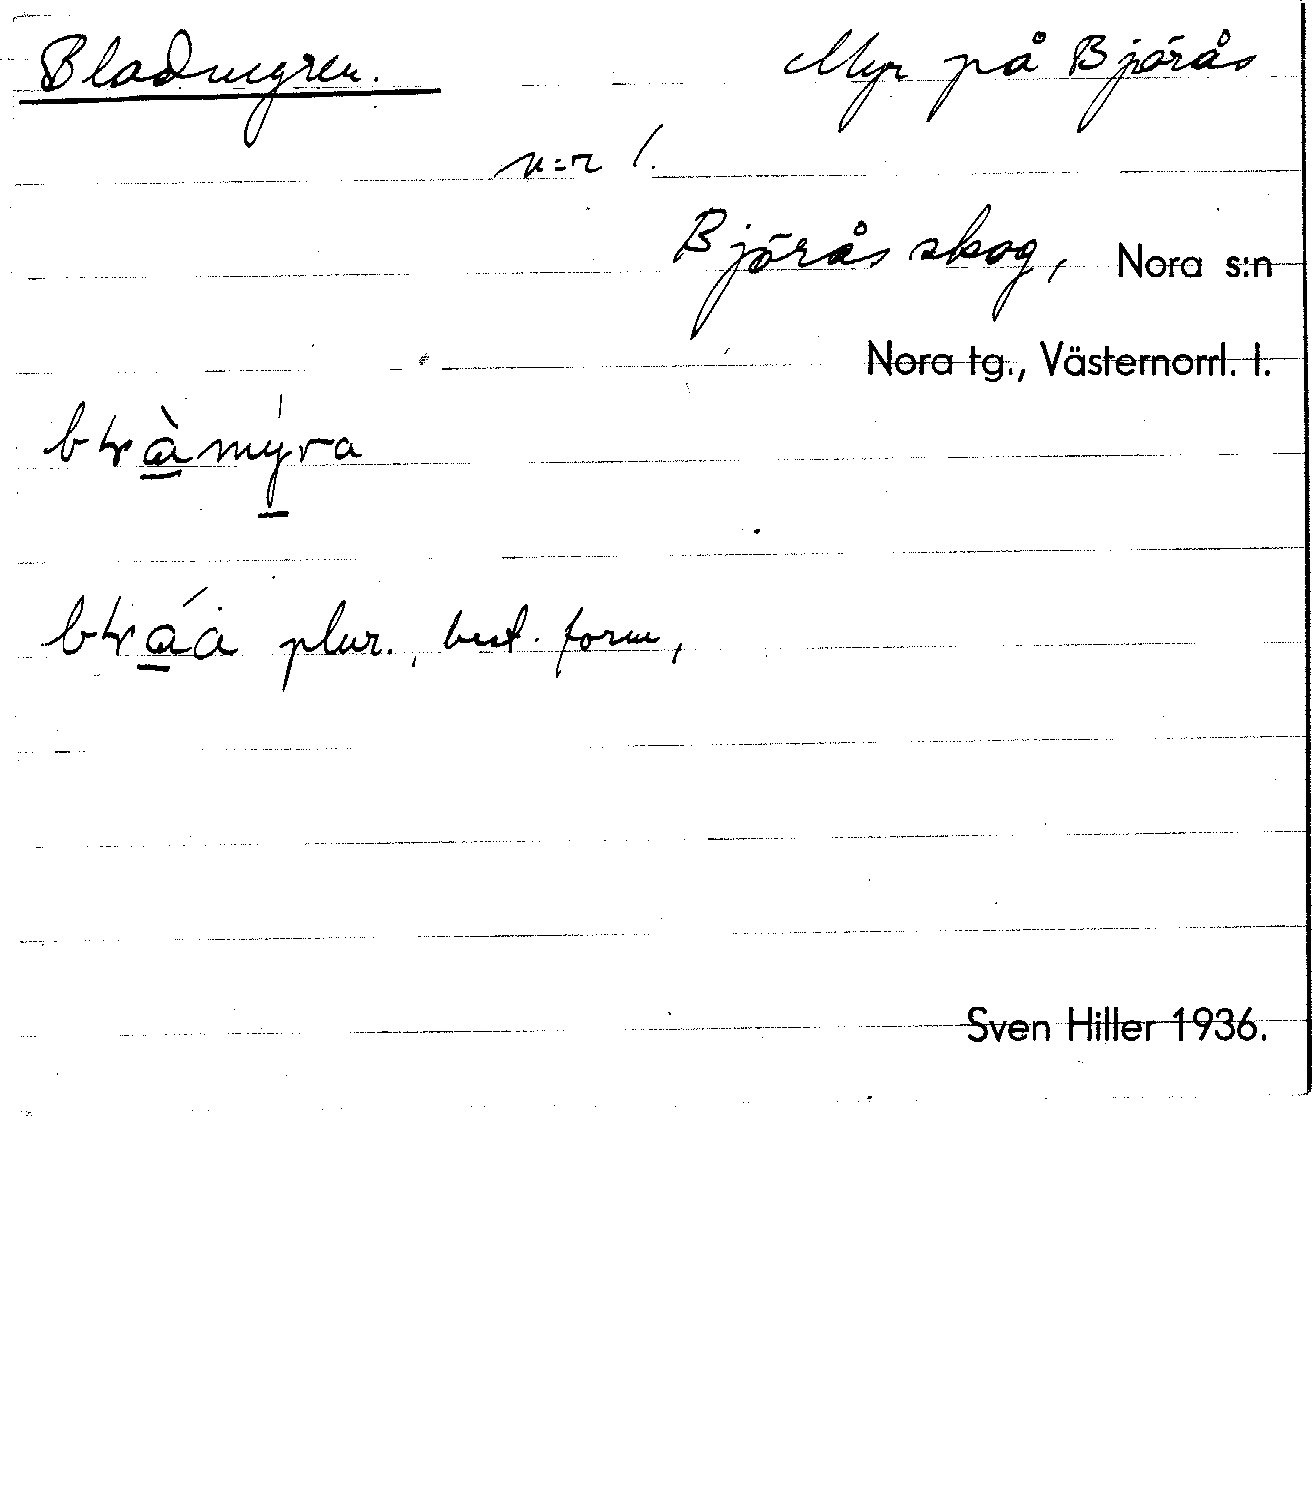 Bladmyren. Myr på Björås
n:r 1.
Björås skog, Nora s:n
Nora tg., Västernorrl. l.
plur., best. form,
Sven Hiller 1936.